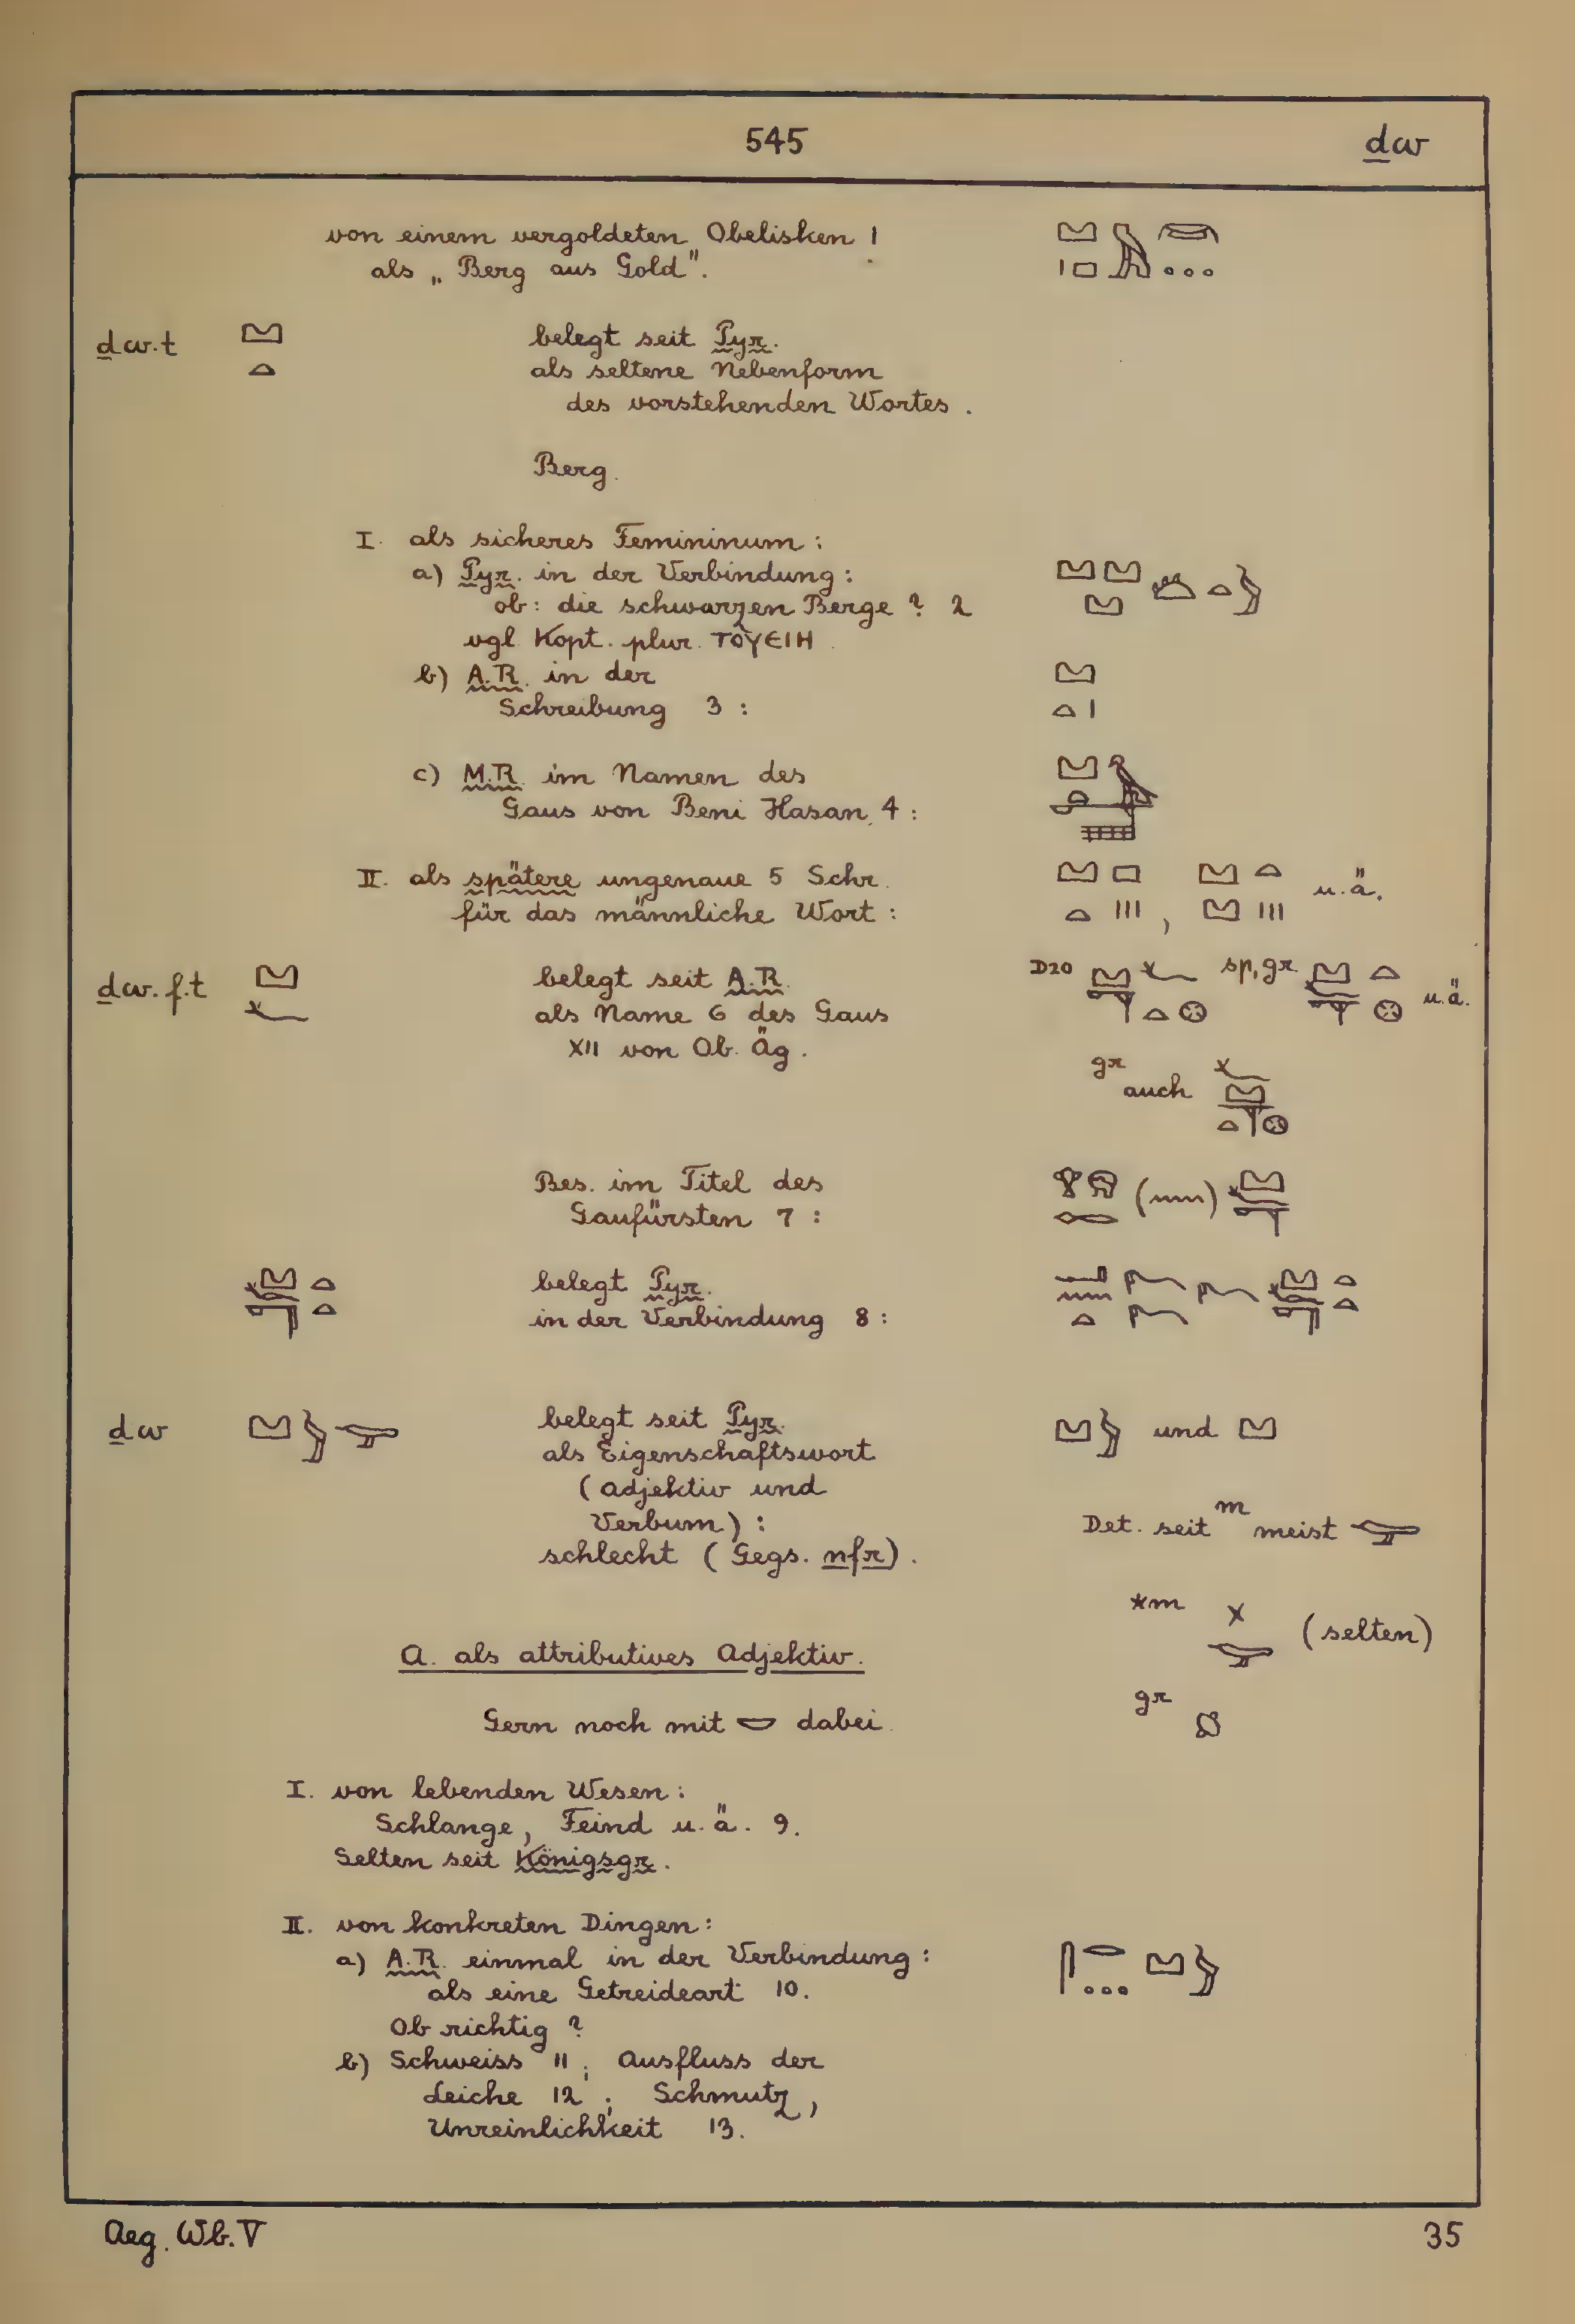 545 ḏw
von einem vergoldeten Obelisken 1
als „Berg aus Gold".
ḏw.t belegt seit Pyr.
als seltene Nebenform
des vorstehenden Wortes.
Berg.
I. als sicheres Femininum:
a) Pyr. in der Verbindung:
ob: die schwarzen Berge? 2
vgl. Kopt. plur. ⲧⲟⲩⲉⲓⲏ.
b) A.R. in der
Schreibung 3:
c) M.R. im Namen des
Gaus von Beni Hasan 4:
II. als spätere ungenaue 5 Schr.
für das männliche Wort: , u.ä.
ḏw.f.t belegt seit A.R. D20 sp, gr. u.ä.
als Name 6 des Gaus
XII von Ob. Äg.
gr auch
Bes. im Titel des
Gaufürsten 7: ( )
belegt Pyr.
in der Verbindung 8:
ḏw belegt seit Pyr. und
als Eigenschaftswort
(Adjektiv und
Verbum): Det. seit m meist
schlecht (Gegs. nfr).
*m (selten)
A. als attributives Adjektiv.
gr
Gern noch mit dabei.
I. von lebenden Wesen:
Schlange, Feind u.ä. 9.
Selten seit Königsgr.
II. von konkreten Dingen:
a) A.R. einmal in der Verbindung:
als eine Getreideart 10.
Ob richtig?
b) Schweiss 11; Ausfluss der
Leiche 12; Schmutz,
Unreinlichkeit 13.
Aeg. Wb. V 35